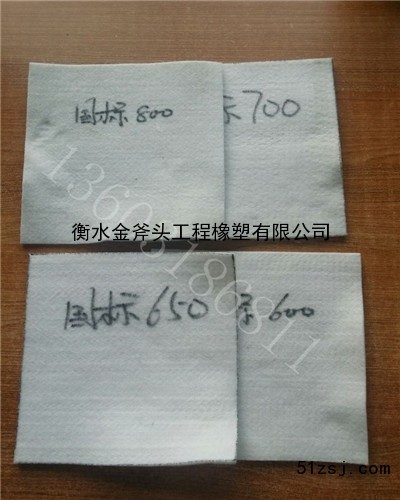 国标800
标700
13603186811
衡水金斧头工程橡塑有限公司
国标650
标600
51zsj.com